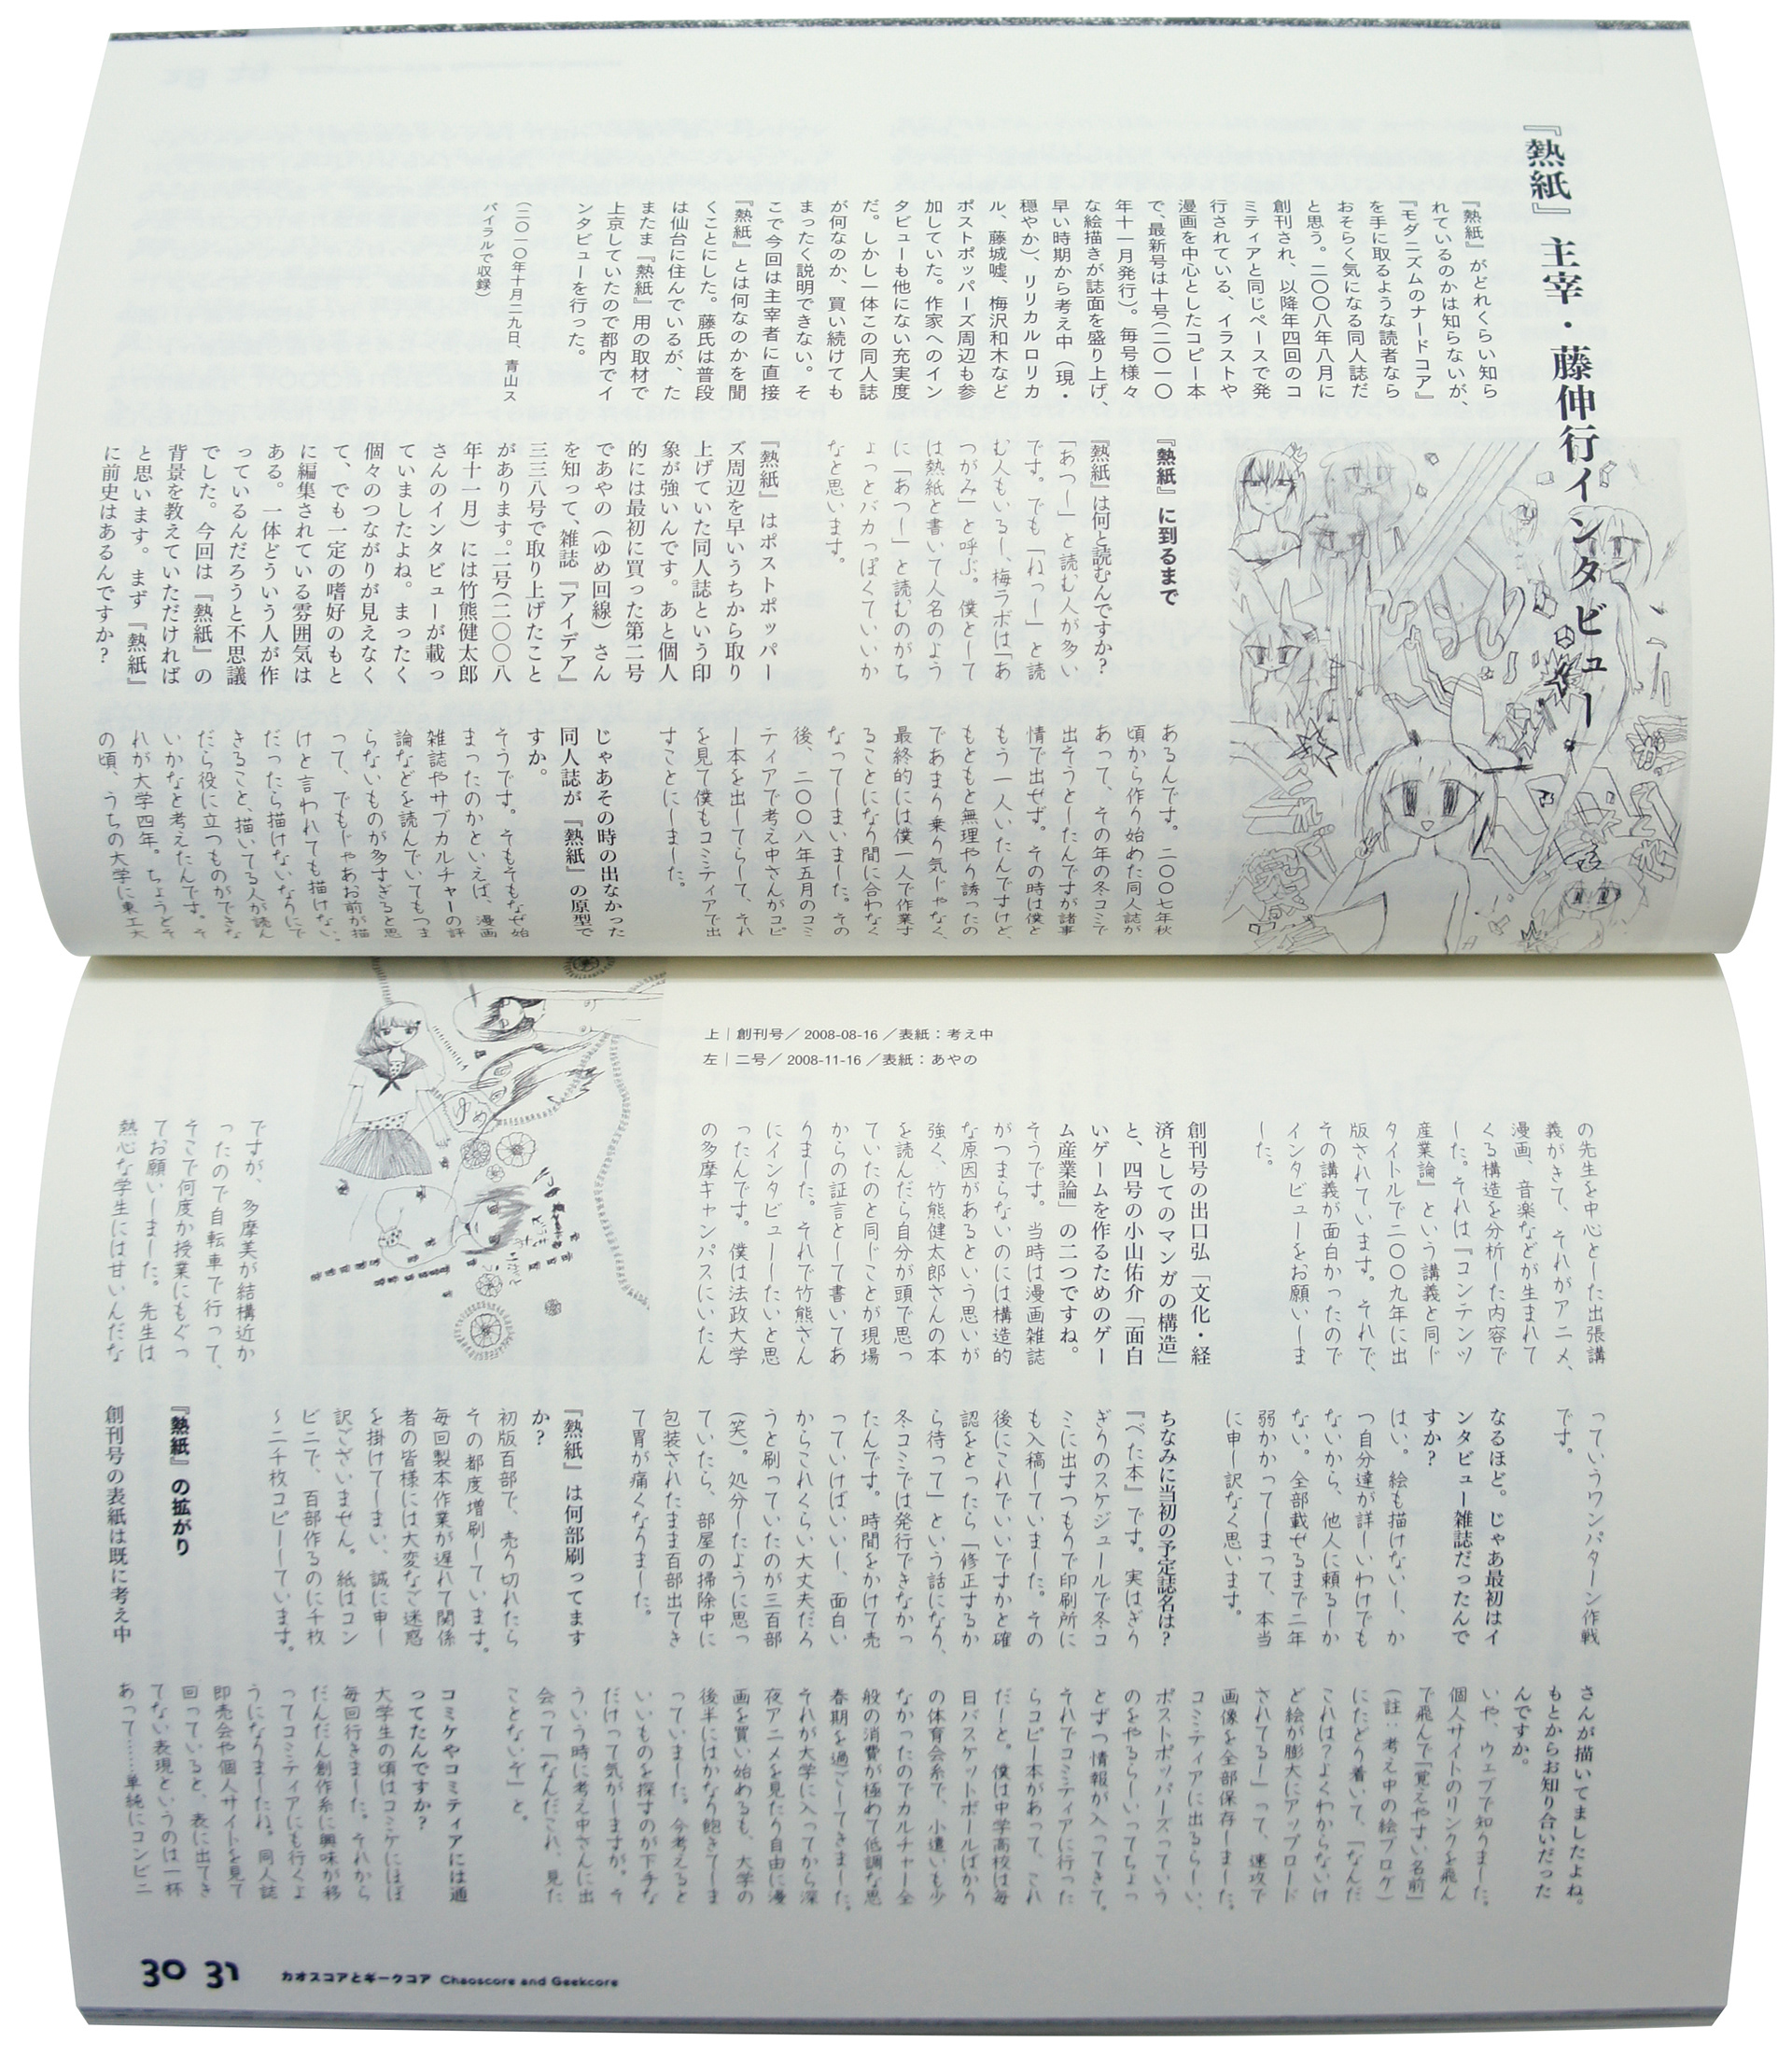 『熱紙』主宰・藤伸行インタビュー
『熱紙』がどれくらい知ら
れているのかは知らないが、
『モダニズムのナードコア』
を手に取るような読者なら
おそらく気になる同人誌だ
と思う。二〇〇八年八月に
創刊され、以降年四回のコ
ミティアと同じペースで発
行されている、イラストや
漫画を中心としたコピー本
で、最新号は十号（二〇一〇
年十一月発行）。毎号様々
な絵描きが誌面を盛り上げ、
早い時期から考え中（現・
穏やか）、リリカルロリカ
ル、藤城嘘、梅沢和木など
ポストポッパーズ周辺も参
加していた。作家へのイン
タビューも他にない充実度
だ。しかし一体この同人誌
が何なのか、買い続けても
まったく説明できない。そ
こで今回は主宰者に直接
『熱紙』とは何なのかを聞
くことにした。藤氏は普段
は仙台に住んでいるが、た
またま『熱紙』用の取材で
上京していたので都内でイ
ンタビューを行った。
（二〇一〇年十月二九日、青山ス
パイラルで収録）
『熱紙』に到るまで
『熱紙』は何と読むんですか？
「あつし」と読む人が多い
です。でも「ねっし」と読
む人もいるし、梅ラボは「あ
つがみ」と呼ぶ。僕として
は熱紙と書いて人名のよう
に「あつし」と読むのがち
ょっとバカっぽくていいか
なと思います。
『熱紙』はポストポッパー
ズ周辺を早いうちから取り
上げていた同人誌という印
象が強いんです。あと個人
的には最初に買った第二号
であやの（ゆめ回線）さん
を知って、雑誌『アイデア』
三三八号で取り上げたこと
があります。二号（二〇〇八
年十一月）には竹熊健太郎
さんのインタビューが載っ
ていましたよね。まったく
個々のつながりが見えなく
て、でも一定の嗜好のもと
に編集されている雰囲気は
ある。一体どういう人が作
っているんだろうと不思議
でした。今回は『熱紙』の
背景を教えていただければ
と思います。まず『熱紙』
に前史はあるんですか？
あるんです。二〇〇七年秋
頃から作り始めた同人誌が
あって、その年の冬コミで
出そうとしたんですが諸事
情で出せず。その時は僕と
もう一人いたんですけど、
もともと無理やり誘ったの
であまり乗り気じゃなく、
最終的には僕一人で作業す
ることになり間に合わなく
なってしまいました。その
後、二〇〇八年五月のコミ
ティアで考え中さんがコピ
ー本を出してらして、それ
を見て僕もコミティアで出
すことにしました。
じゃあその時の出なかった
同人誌が『熱紙』の原型で
すか。
そうです。そもそもなぜ始
まったのかといえば、漫画
雑誌やサブカルチャーの評
論などを読んでいてもつま
らないものが多すぎると思
って、でもじゃあお前が描
けと言われても描けない。
だったら描けないなりにで
きること、描いてる人が読ん
だら役に立つものができな
いかなと考えたんです。そ
れが大学四年。ちょうどそ
の頃、うちの大学に東工大
上｜創刊号／2008-08-16／表紙：考え中
左｜二号／2008-11-16／表紙：あやの
ゆめ
の先生を中心とした出張講
義がきて、それがアニメ、
漫画、音楽などが生まれて
くる構造を分析した内容で
した。それは『コンテンツ
産業論』という講義と同じ
タイトルで二〇〇九年に出
版されています。それで、
その講義が面白かったので
インタビューをお願いしま
した。
創刊号の出口弘「文化・経
済としてのマンガの構造」
と、四号の小山佑介「面白
いゲームを作るためのゲー
ム産業論」の二つですね。
そうです。当時は漫画雑誌
がつまらないのには構造的
な原因があるという思いが
強く、竹熊健太郎さんの本
を読んだら自分が頭で思っ
ていたのと同じことが現場
からの証言として書いてあ
りました。それで竹熊さん
にインタビューしたいと思
ったんです。僕は法政大学
の多摩キャンパスにいたん
ですが、多摩美が結構近か
ったので自転車で行って、
そこで何度か授業にもぐっ
てお願いしました。先生は
熱心な学生には甘いんだな
っていうワンパターン作戦
です。
なるほど。じゃあ最初はイ
ンタビュー雑誌だったんで
すか？
はい。絵も描けないし、か
つ自分達が詳しいわけでも
ないから、他人に頼るしか
ない。全部載せるまで二年
弱かかってしまって、本当
に申し訳なく思います。
ちなみに当初の予定誌名は？
『べた本』です。実はぎり
ぎりのスケジュールで冬コ
ミに出すつもりで印刷所に
も入稿していました。その
後にこれでいいですかと確
認をとったら「修正するか
ら待って」という話になり、
冬コミでは発行できなかっ
たんです。時間をかけて売
っていけばいいし、面白い
からこれくらい大丈夫だろ
うと刷っていたのが三百部
（笑）。処分したように思っ
ていたら、部屋の掃除中に
包装されたまま百部出てき
て胃が痛くなりました。
『熱紙』は何部刷ってます
か？
初版百部で、売り切れたら
その都度増刷しています。
毎回製本作業が遅れて関係
者の皆様には大変なご迷惑
を掛けてしまい、誠に申し
訳ございません。紙はコン
ビニで、百部作るのに千枚
～二千枚コピーしています。
『熱紙』の拡がり
創刊号の表紙は既に考え中
さんが描いてましたよね。
もとからお知り合いだった
んですか。
いや、ウェブで知りました。
個人サイトのリンクを飛ん
で飛んで「覚えやすい名前」
（註：考え中の絵ブロケ）
にたどり着いて、「なんだ
これは？よくわからないけ
ど絵が膨大にアップロード
されてる！」って、速攻で
画像を全部保存しました。
コミティアに出るらしい、
ポストポッパーズっていう
のをやるらしいってちょっ
とずつ情報が入ってきて。
それでコミティアに行った
らコピー本があって、これ
だ！と。僕は中学高校は毎
日バスケットボールばかり
の体育会系で、小遣いも少
なかったのでカルチャー全
般の消費が極めて低調な思
春期を過ごしてきました。
それが大学に入ってから深
夜アニメを見たり自由に漫
画を買い始めるも、大学の
後半にはかなり飽きてしま
っていました。今考えると
いいものを探すのが下手な
だけって気がしますが。そ
ういう時に考え中さんに出
会って「なんだこれ、見た
ことないぞ」と。
コミケやコミティアには通
ってたんですか？
大学生の頃はコミケにほぼ
毎回行きました。それから
だんだん創作系に興味が移
ってコミティアにも行くよ
うになりましたね。同人誌
即売会や個人サイトを見て
回っていると、表に出てき
てない表現というのは一杯
あって……単純にコンビニ
30 31 カオスコアとギークコア Chaoscore and Geekcore